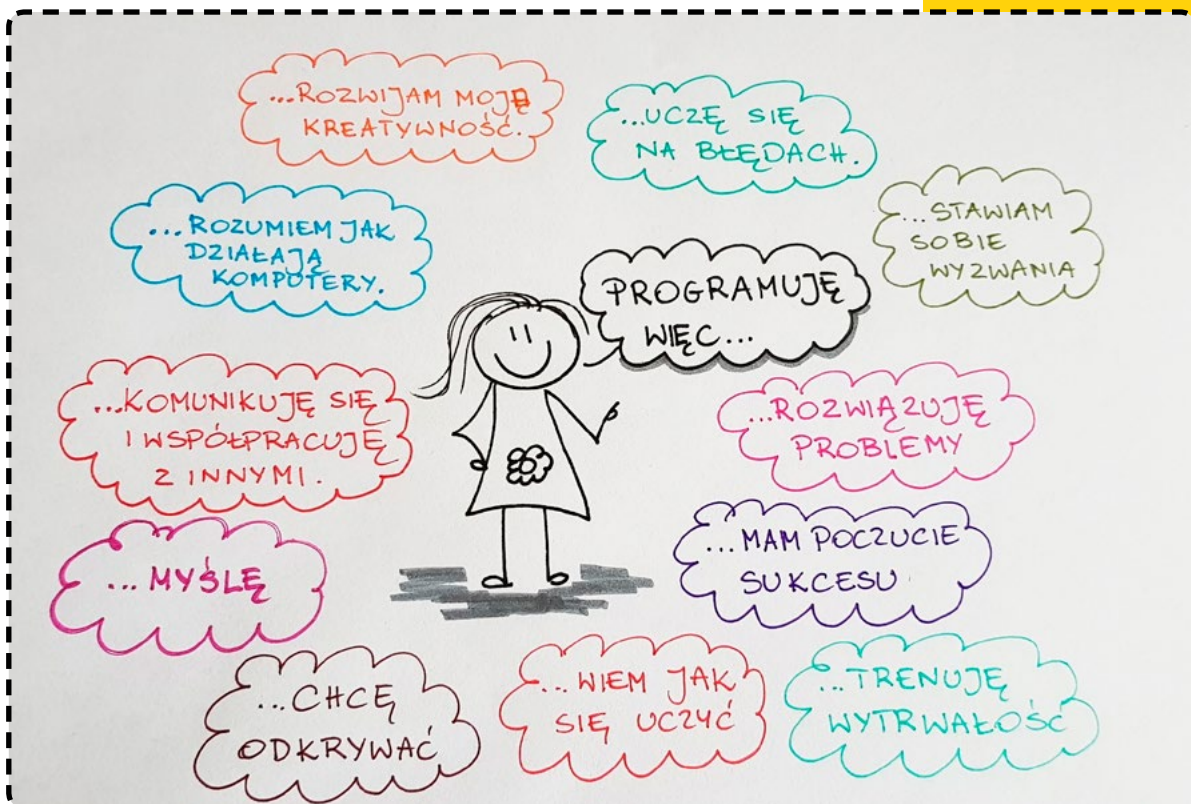 ...ROZWIJAM MOJĘ
KREATYWNOŚĆ.
...UCZĘ SIĘ
NA BŁĘDACH.
...ROZUMIEM JAK
DZIAŁAJĄ
KOMPOTERY.
...STAWIAM
SOBIE
WYZWANIA
PROGRAMUJĘ
WIĘC...
...KOMUNIKUJĘ SIĘ
I WSPÓŁPRACUJĘ
Z INNYMI.
...ROZWIĄZUJĘ
PROBLEMY
...MYŚLĘ
...MAM POCZUCIE
SUKCESU
...CHCĘ
ODKRYWAĆ
...WIEM JAK
SIĘ UCZYĆ
...TRENUJĘ
WYTRWAŁOŚĆ